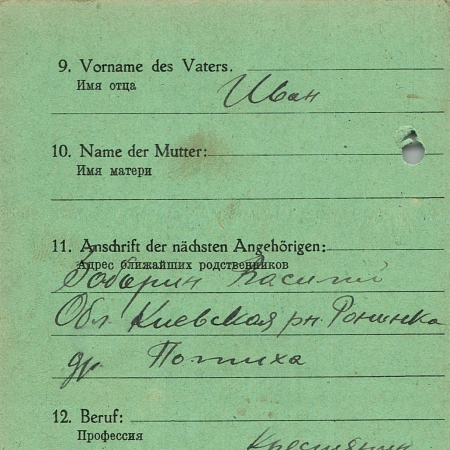 9. Vorname des Vaters.
Имя отца
Иван
10. Name der Mutter:
Имя матери
11. Anschrift der nächsten Angehörigen:
Адрес ближайших родственников
Василий
Обл. Киевская рн.
др.
12. Beruf:
Профессия
Крестьянин